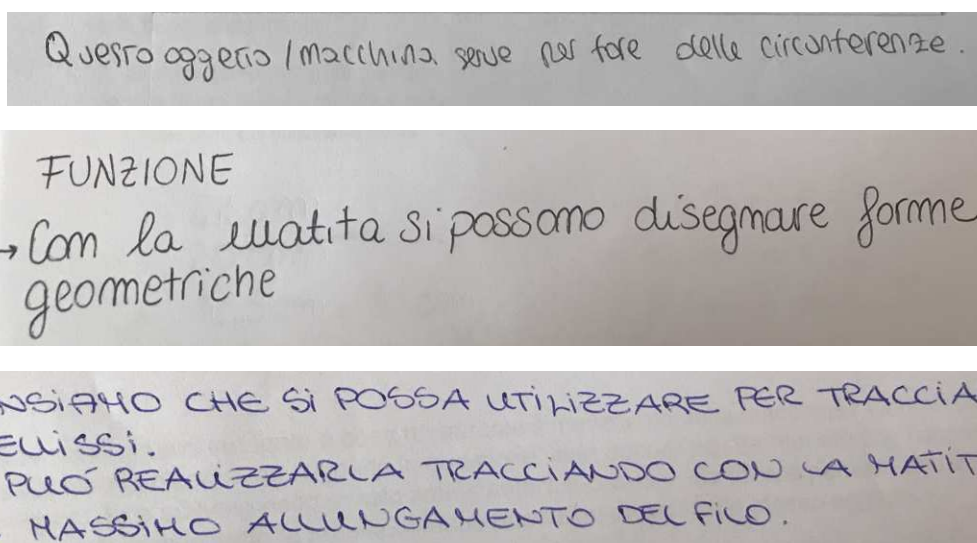 Questo oggetto / macchina serve per fare delle circonferenze.
FUNZIONE
→ Con la matita si possono disegnare forme
geometriche
NSIAMO CHE SI POSSA UTILIZZARE PER TRACCIA
ELLISSI.
PUÓ REALIZZARLA TRACCIANDO CON LA MATIT
MASSIMO ALLUNGAMENTO DEL FILO.